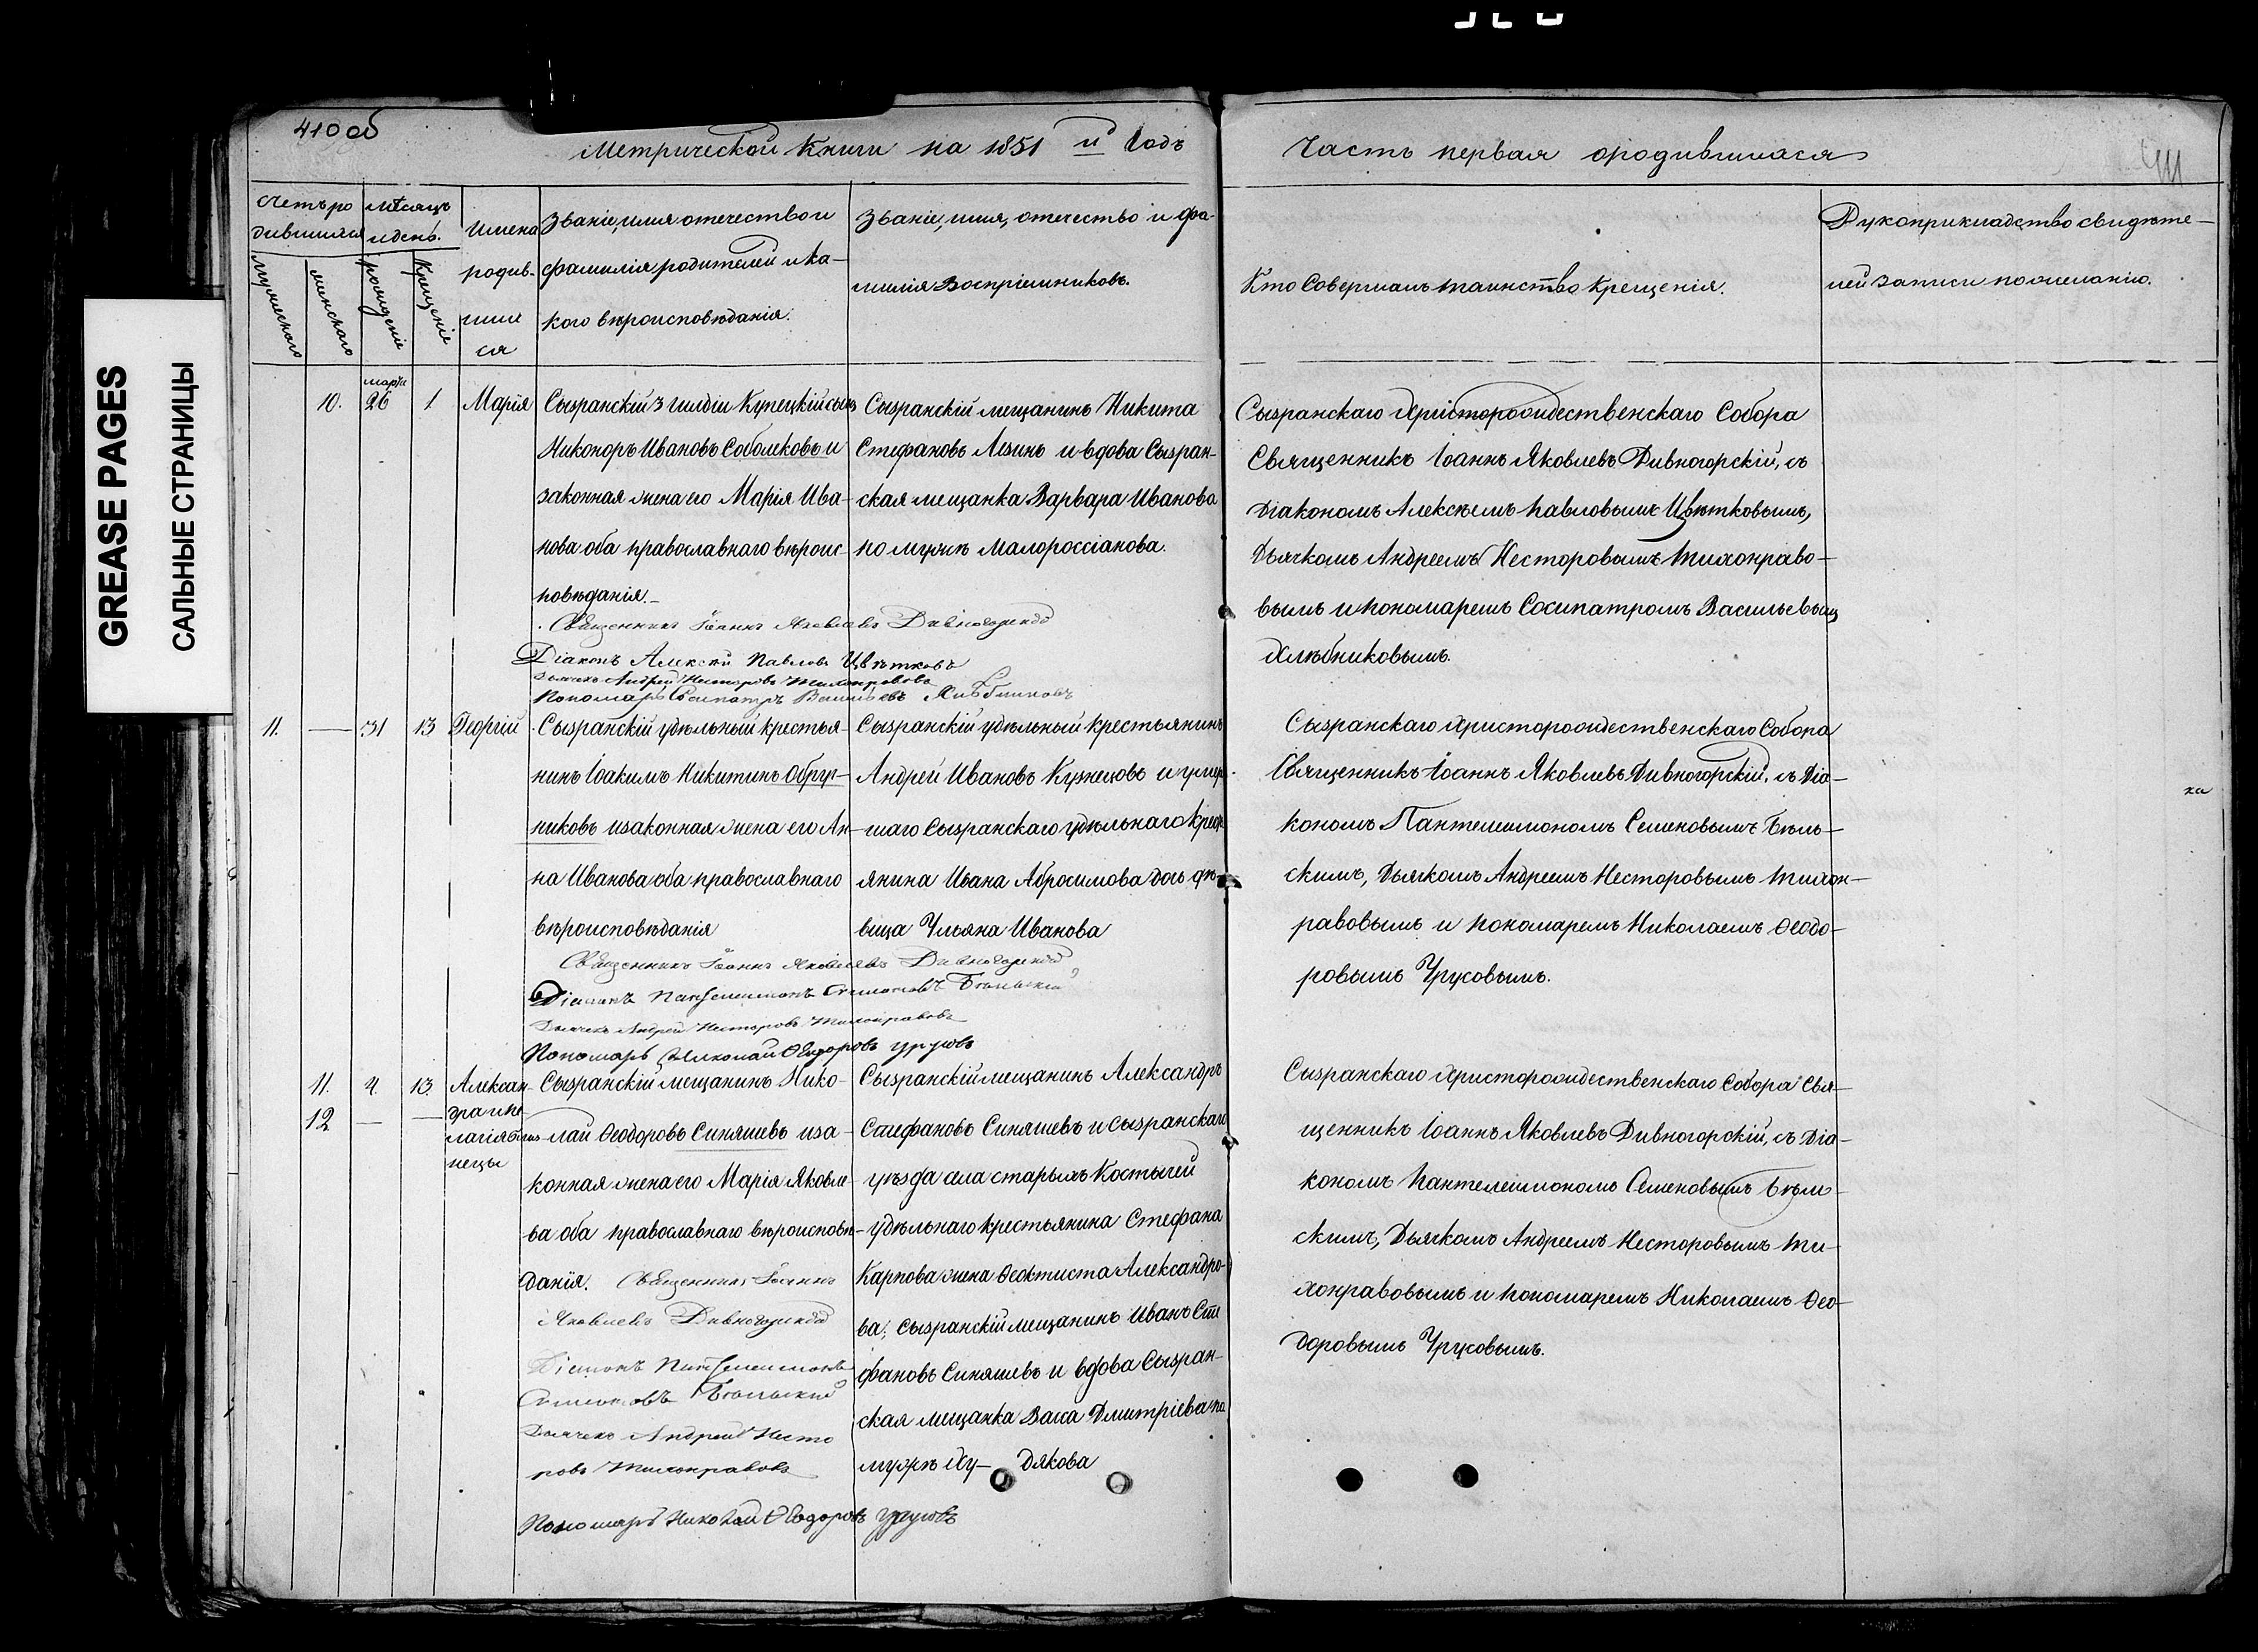 GREASE PAGES
САЛЬНЫЕ СТРАНИЦЫ
410 об
Метрической Книги на 1851 й Годъ
Часть первая ородившихся
411
Счетъ ро
дившихся
мѣсяцъ
и день.
мужескаго
женскаго
рожденіе
крещеніе
Имена
родив-
ших
ся
Званіе, имя отечество и
фамилія родителей и ка-
кого вѣроисповѣданія.
Званіе, имя, отечество и фа-
милія Воспріемниковъ.
Кто Совершалъ таинство крещенія.
Рукоприкладство свидѣте-
лей записи пожеланію.
10.
марта
26
1.
Марія
Сызранскій 3 гилдіи Купецкій сынъ
Никоноръ Ивановъ Соболековъ и
законная жена его Марія Ива-
нова оба православнаго вѣроис-
повѣданія.
Священникъ Іоаннъ Яковлевъ Дивногорскій
Діаконъ Алексѣй Павловъ Цвѣтковъ
Дьячекъ Андрей Несторовъ Тихонравовъ
Пономарь Сосипатръ Васильевъ Хлѣбниковъ
Сызранскій мещанинъ Никита
Стефановъ Лезинъ и вдова Сызран-
ская мещанка Варвара Иванова
по мужѣ Малороссіанова.
Сызранскаго Христорождественскаго Собора
Священникъ Іоаннъ Яковлевъ Дивногорскій, съ
Діакономъ Алексѣемъ Павловымъ Цвѣтковымъ,
Дьячкомъ Андреемъ Несторовымъ Тихонраво-
вымъ и пономаремъ Сосипатромъ Васильевымъ
Хлѣбниковымъ.
11.
—
31
13
Георгій
Сызранскій удѣльный крестья-
нинъ Іоакимъ Никитинъ Обруч-
никовъ и законная жена его Ан-
на Иванова оба православнаго
вѣроисповѣданія
Священникъ Іоаннъ Яковлевъ Дивногорскій
Діаконъ Пантелеимонъ Симеоновъ Бѣльскій
Дьячекъ Андрей Несторовъ Тихонравовъ
Пономарь Николай Ѳеодоровъ Урусовъ
Сызранскій удѣльный крестьянинъ
Андрей Ивановъ Кузнецовъ и умер-
шаго Сызранскаго удѣльнаго крест
янина Ивана Абросимова дочь дѣ-
вица Ульяна Иванова
Сызранскаго Христорождественскаго Собора
Священникъ Іоаннъ Яковлевъ Дивногорскій, съ Діа-
кономъ Пантелеимономъ Семеновымъ Бѣль-
скимъ, Дьячкомъ Андреемъ Несторовымъ Тихон-
равовымъ и пономаремъ Николаемъ Ѳеодо-
ровымъ Урусовымъ.
11.
12
4.
—
13.
—
Алексан-
дра и Пе
лагія близ
нецы
Сызранскій мещанинъ Нико-
лай Ѳеодоровъ Синяшевъ и за-
конная жена его Марія Яковле-
ва оба православнаго вѣроисповѣ-
данія. Священникъ Іоаннъ
Яковлевъ Дивногорскій
Діаконъ Пантелеимонъ
Симеоновъ Бѣльскій
Дьячекъ Андрей Несто
ровъ Тихонравовъ
Пономарь Николай Ѳеодоровъ Урусовъ
Сызранскій мещанинъ Александръ
Стефановъ Синяшевъ и Сызранскаго
уѣзда села старыхъ Костычей
удѣльнаго крестьянина Стефана
Карпова жена Ѳеоктиста Александро-
ва; Сызранскій мещанинъ Иванъ Сте
фановъ Синяшевъ и вдова Сызран-
ская мещанка Васса Дмитріева по
мужѣ Ху- дякова
Сызранскаго Христорождественскаго Собора Свя-
щенникъ Іоаннъ Яковлевъ Дивногорскій, съ Діа-
кономъ Пантелеимономъ Семеновымъ Бѣль-
скимъ, Дьячкомъ Андреемъ Несторовымъ Ти-
хонравовымъ и пономаремъ Николаемъ Ѳео-
доровымъ Урусовымъ.